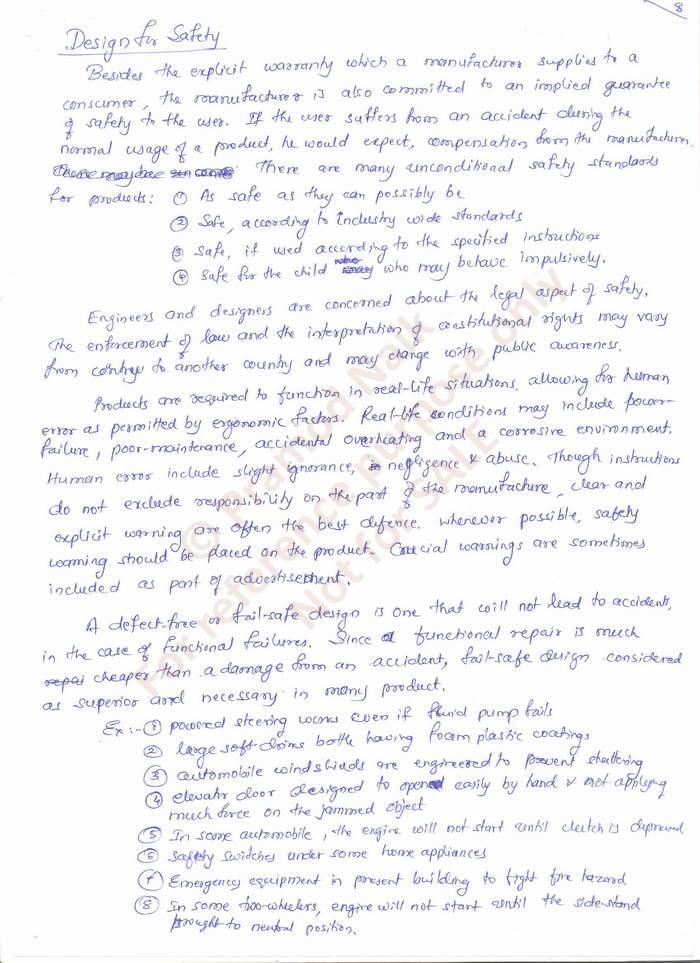 8
Design for Safety
Besides the explicit warranty which a manufacturer supplies to a
consumer, the manufacturer is also committed to an implied guarantee
of safety to the user. If the user suffers from an accident during the
normal usage of a product, he would expect, compensation from the manufacturer.
There are many unconditional safety standards
for products: ① As safe as they can possibly be
② Safe, according to Industry wide standards
③ Safe, if used according to the specified instructions
④ Safe for the child who may behave impulsively.
Engineers and designers are concerned about the legal aspect of safety.
The enforcement of law and the interpretation of constitutional rights may vary
from country to another country and may change with public awareness.
Products are required to function in real-life situations, allowing for human
error as permitted by ergonomic factors. Real-life conditions may include power-
failure, poor-maintenance, accidental overheating and a corrosive environment.
Human error include slight ignorance, negligence & abuse. Though instructions
do not exclude responsibility on the part of the manufacture, clear and
explicit warning are often the best defence. Whenever possible, safety
warning should be placed on the product. Crucial warnings are sometimes
included as part of advertisement.
A defect-free or fail-safe design is one that will not lead to accidents,
in the case of functional failures. Since functional repair is much
cheaper than a damage from an accident, fail-safe design considered
as superior and necessary in many product.
Ex:- ① powered steering works even if fluid pump fails
② large soft-drinks bottle having foam plastic coatings
③ automobile windshields are engineered to prevent shattering
④ elevator door designed to open easily by hand & not applying
much force on the jammed object
⑤ In some automobile, the engine will not start until clutch is depressed
⑥ Safety switches under some home appliances
⑦ Emergency equipment in present building to fight fire hazard
⑧ In some two-wheelers, engine will not start until the side-stand
brought to neutral position.
© Pramod Naik
For referance purpose only
Not for SALE